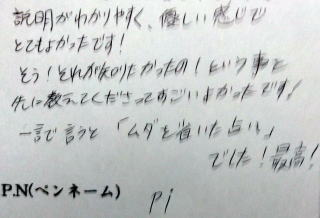 説明がわかりやすく、優しい感じで
とてもよかったです！
そう！それが知りたかったの！という事を
先に教えてくださってすごいよかったです！
一言で言うと「ムダを省いた占い」
でした！最高！
P.N(ペンネーム)
pi